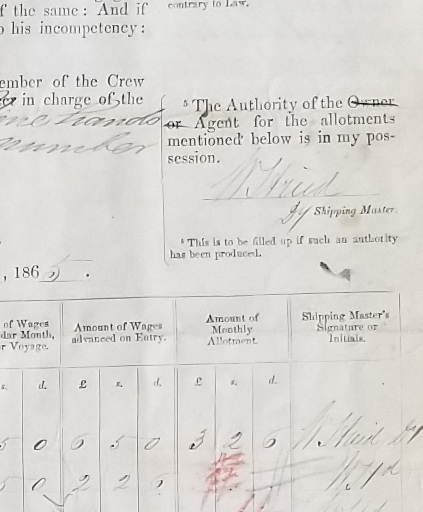 f the same: And if
contrary to Law.
o his incompetency:
ember of the Crew
in charge of the
hands
number
⁵ The Authority of the Owner
or Agent for the allotments
mentioned below is in my pos-
session.
Dy Shipping Master.
⁵ This is to be filled up if such an authority
has been produced.
, 1865.
of Wages
dar Month,
r Voyage.
Amount of Wages
advanced on Entry.
Amount of
Monthly
Allotment.
Shipping Master's
Signature or
Initials.
s. d. £ s. d. £ s. d.
5 0 6 5 0 3 2 6
0 2 2